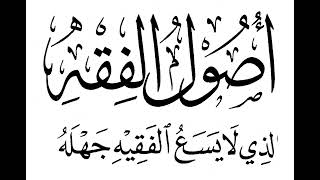 أُصُولُ الفِقْهِ
الذِي لَا يَسَعُ الفَقِيهِ جَهْلَهُ